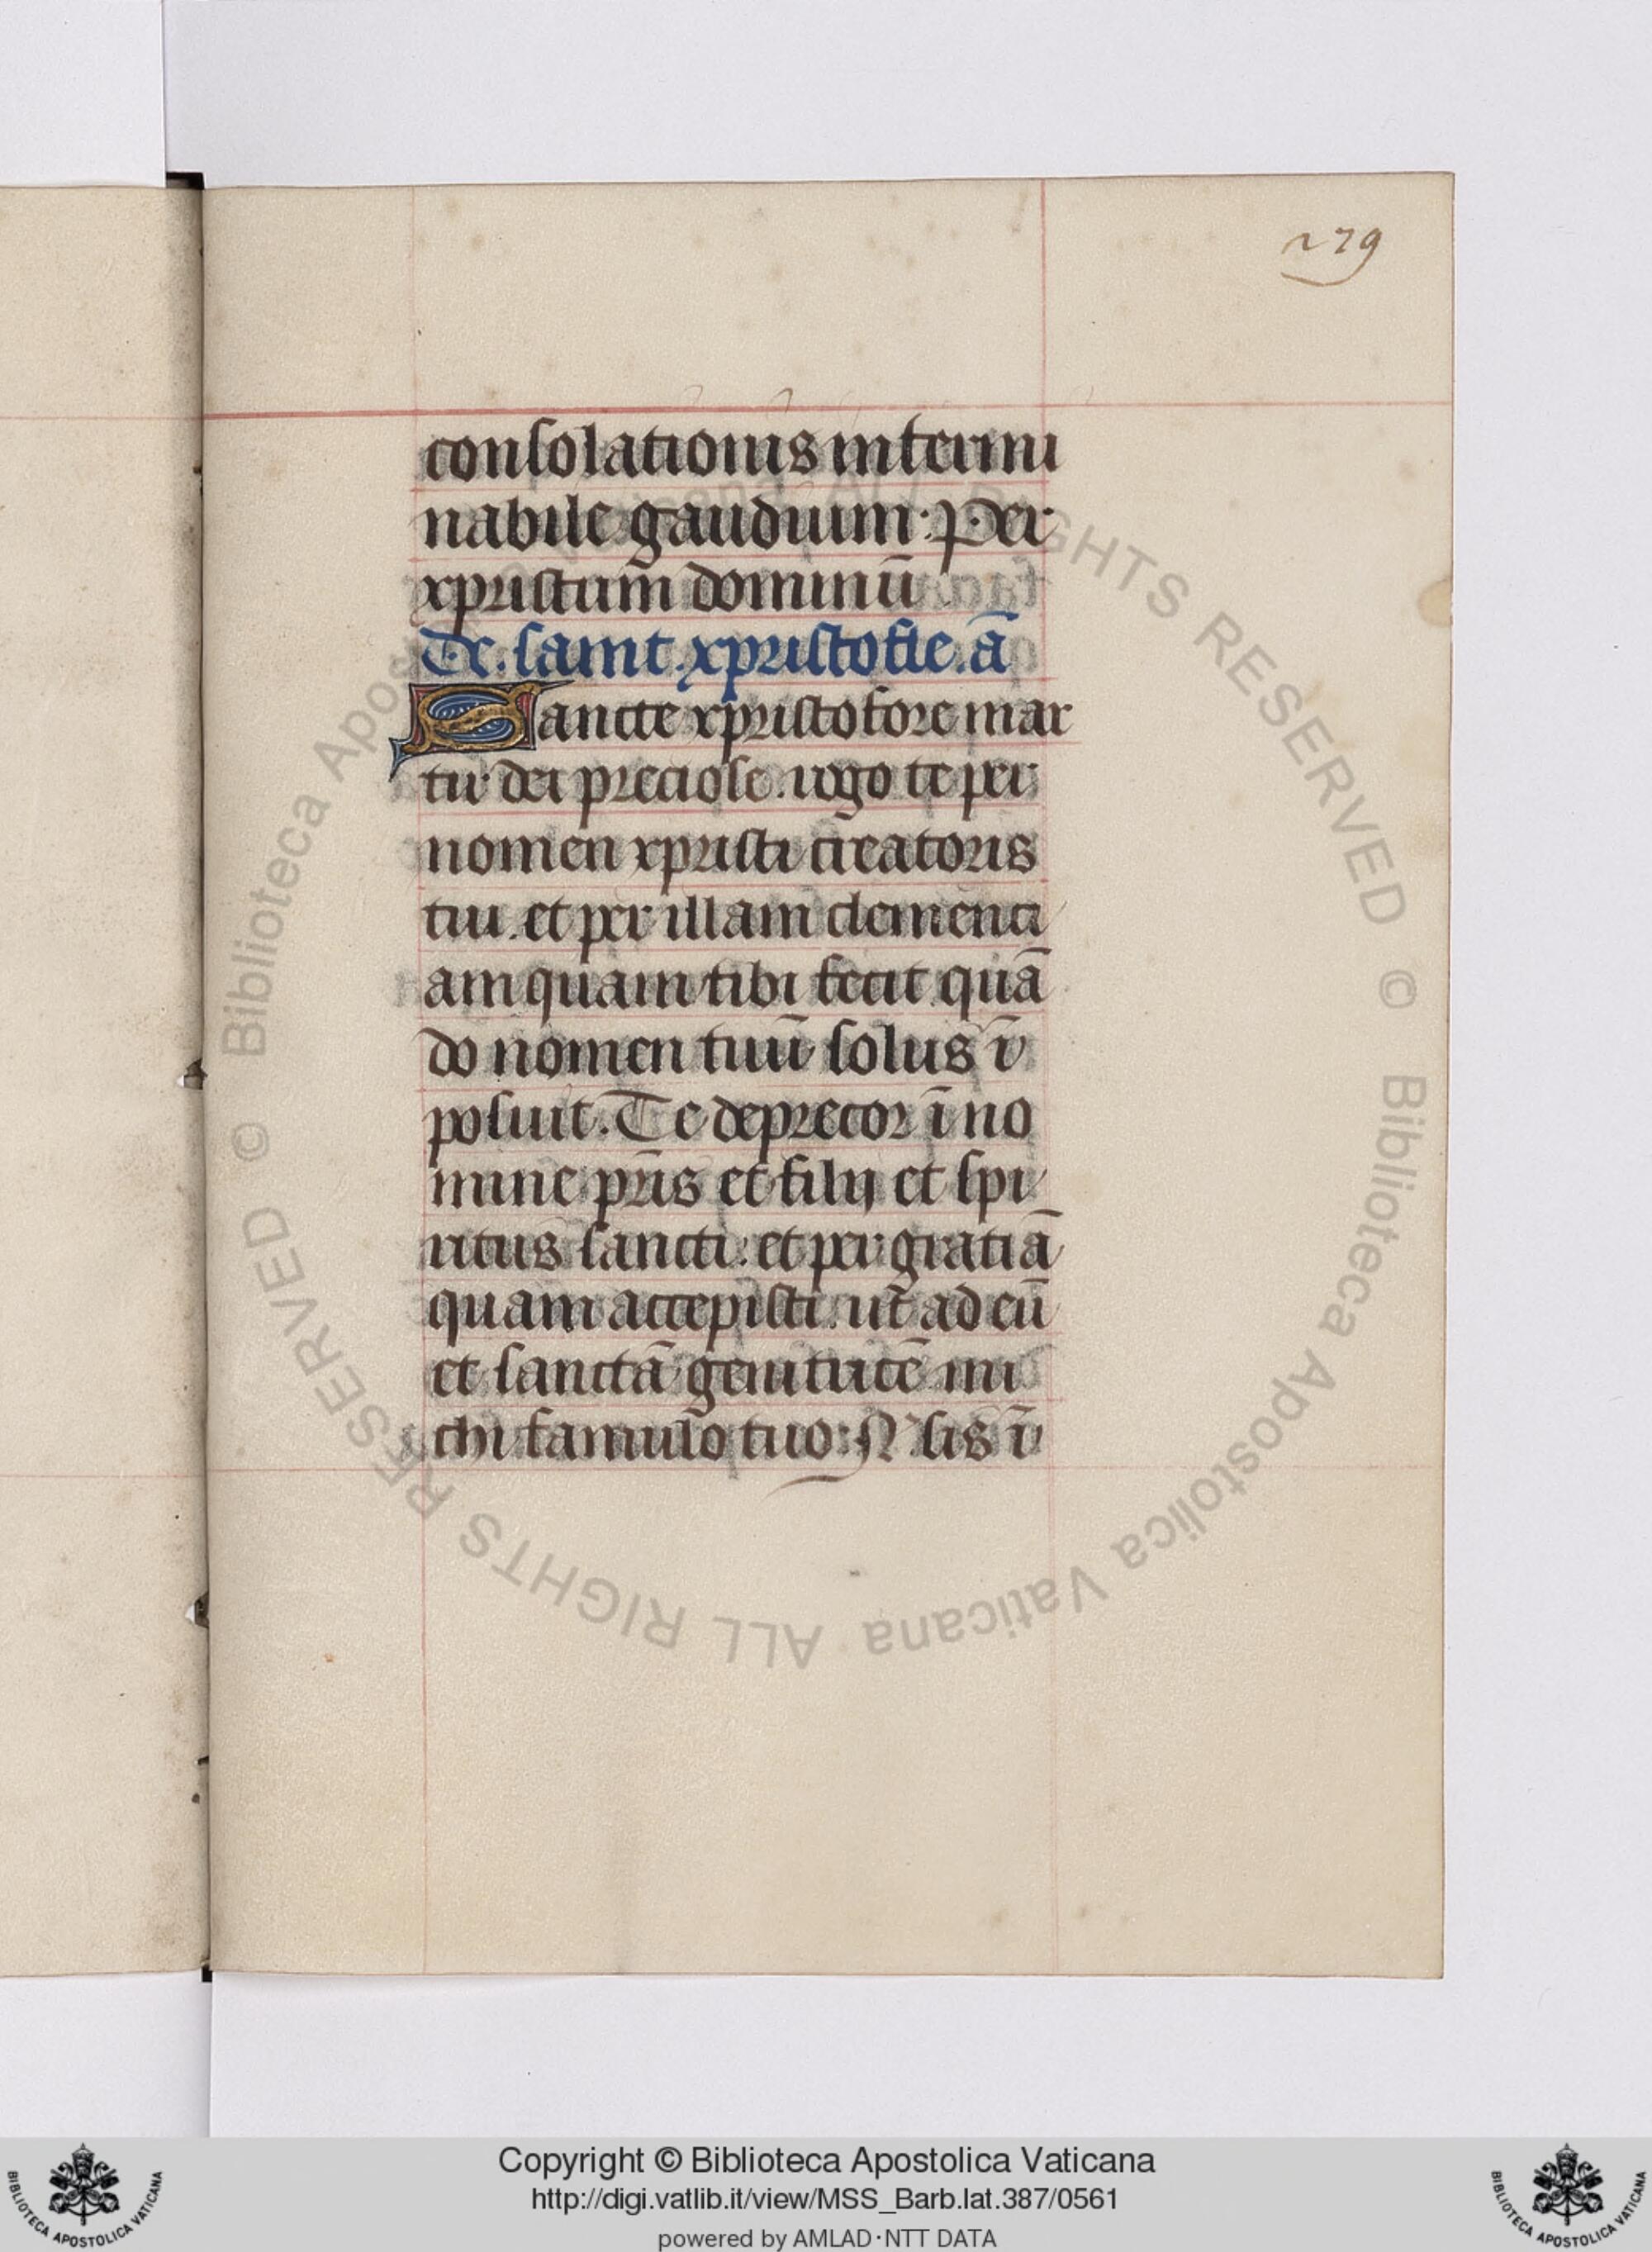 279
consolationis intermi
nabile gaudium. Per
xpristum dominū
De. saint. xpristofle. ā
Sancte xpristofore mar
tir dei preciose. rogo te per
nomen xpristi creatoris
tui. et per illam clemenci
am quam tibi fecit quā
do nomen tuū solus ī
posuit. Te deprecor ī no
mine pr̄is et filij et spi
ritus sancti. et per gratiā
quam accepisti. ut ad eū
et sanctā genitricē mi
chi famulo tuo. N. sis ī
© Biblioteca Apostolica Vaticana ALL RIGHTS RESERVED
© Biblioteca Apostolica Vaticana ALL RIGHTS RESERVED
Copyright © Biblioteca Apostolica Vaticana
http://digi.vatlib.it/view/MSS_Barb.lat.387/0561
powered by AMLAD·NTT DATA
BIBLIOTECA APOSTOLICA VATICANA
BIBLIOTECA APOSTOLICA VATICANA